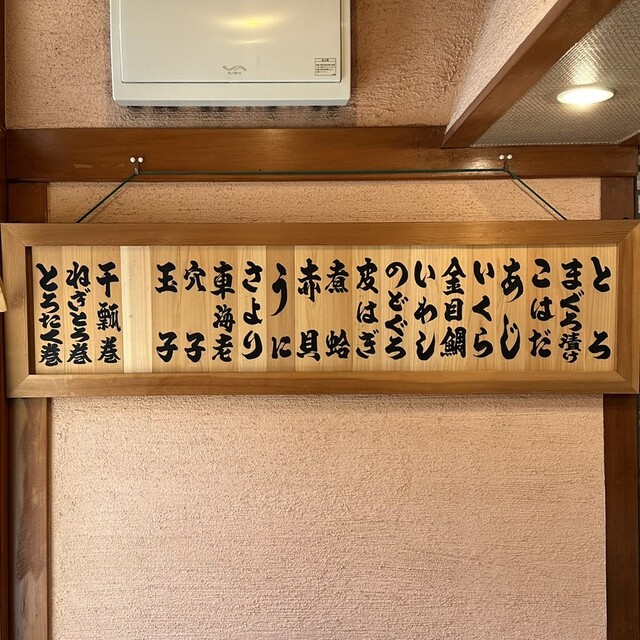 とろ
まぐろ漬け
こはだ
あじ
いくら
金目鯛
いわし
のどぐろ
皮はぎ
煮蛤
赤貝
うに
さより
車海老
穴子
玉子
干瓢巻
ねぎとろ巻
とろたく巻